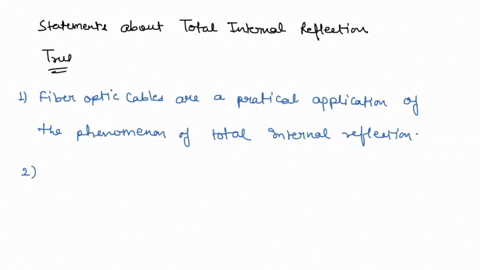 Statements about Total Internal Reflection
True
1) Fiber optic cables are a pratical application of
the phenomenon of total internal reflection.
2)